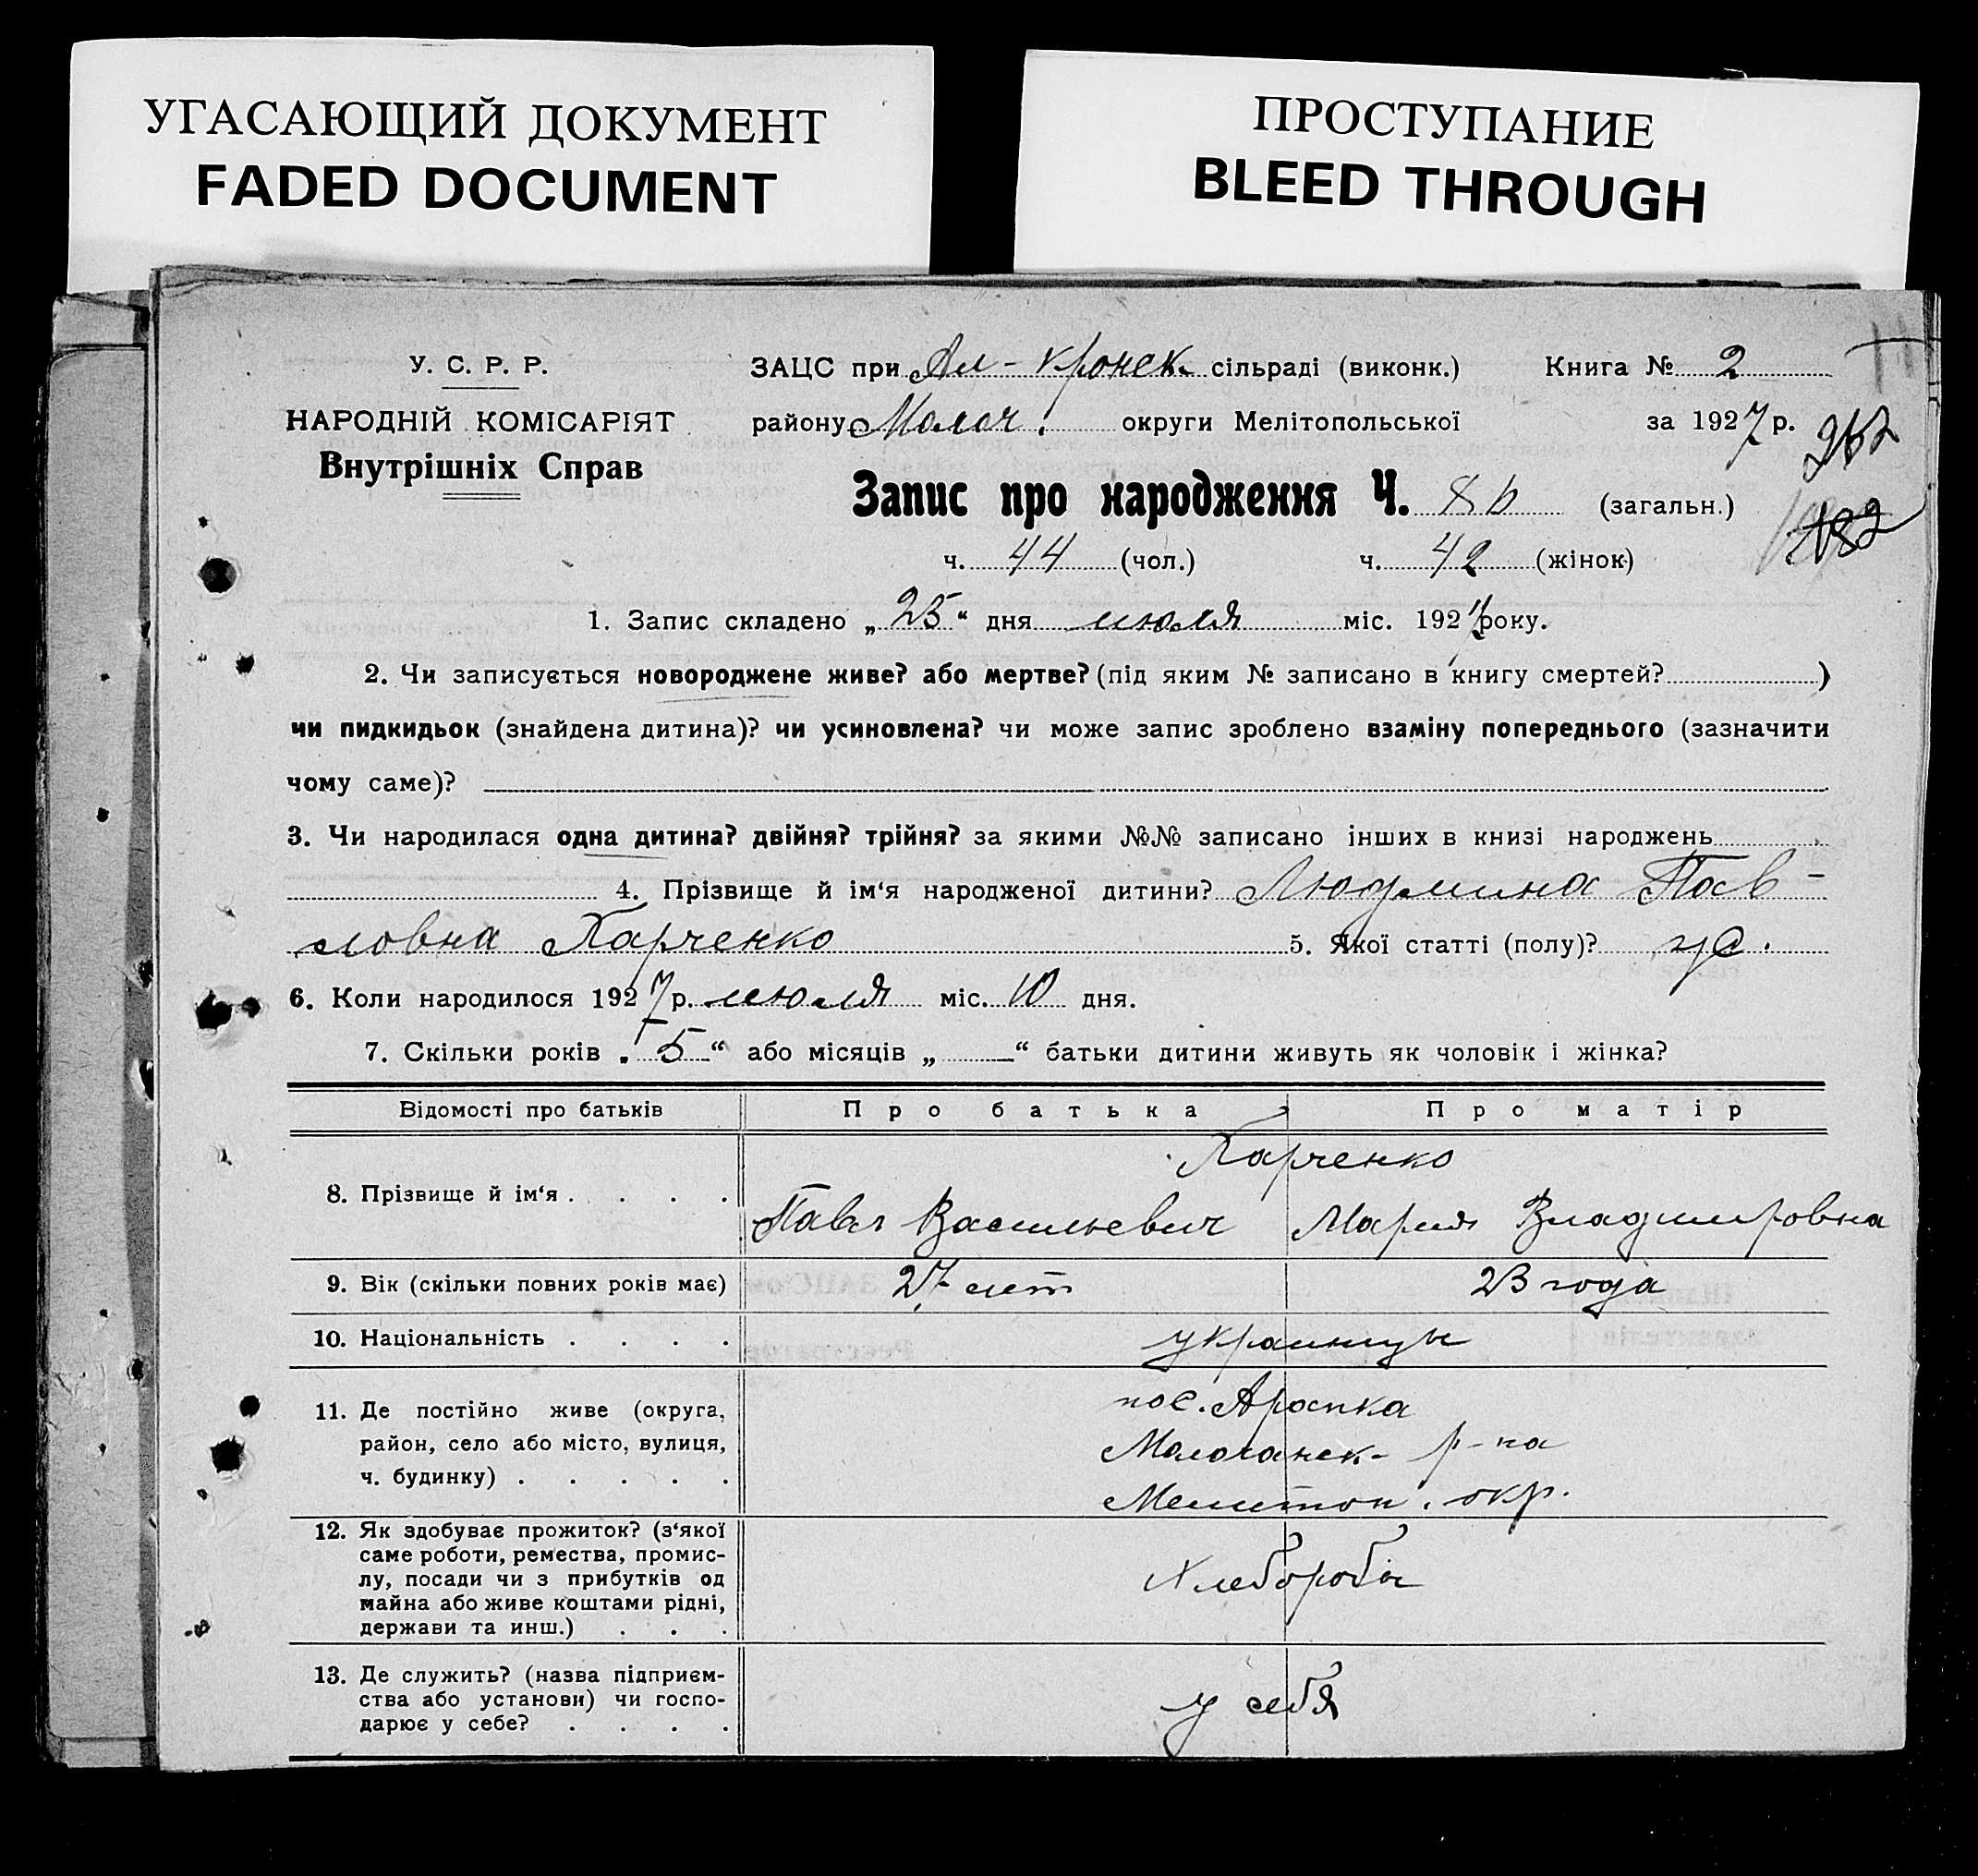 УГАСАЮЩИЙ ДОКУМЕНТ
FADED DOCUMENT
ПРОСТУПАНИЕ
BLEED THROUGH
У. С. Р. Р.
НАРОДНІЙ КОМІСАРІЯТ
Внутрішніх Справ
ЗАЦС при Ал-кронск. сільраді (виконк.) Книга № 2
району Молоч. округи Мелітопольської за 1927 р.
262
182
Запис про народження Ч. 86 (загальн.)
ч. 44 (чол.) ч. 42 (жінок)
1. Запис складено „25“ дня июля міс. 1927 року.
2. Чи записується новороджене живе? або мертве? (під яким № записано в книгу смертей? )
чи пидкидьок (знайдена дитина)? чи усиновлена? чи може запис зроблено взаміну попереднього (зазначити
чому саме)?
3. Чи народилася одна дитина? двійня? трійня? за якими №№ записано інших в книзі народжень
4. Прізвище й ім‘я народженої дитини? Людмина Пав-
ловна Харченко 5. Якої статті (полу)? ж.
6. Коли народилося 1927 р. июля міс. 10 дня.
7. Скільки років „5“ або місяців „ “ батьки дитини живуть як чоловік і жінка?
Відомості про батьків Про батька Про матір
Харченко
8. Прізвище й ім‘я . . . . Павл Васильевич Мария Владимировна
9. Вік (скільки повних років має) 27 лет 23 года
10. Національність . . . . украинцы
11. Де постійно живе (округа,
район, село або місто, вулиця,
ч. будинку) . . . . .
пос.
Молочанск- р-на
Мелитоп. окр.
12. Як здобуває прожиток? (з‘якої
саме роботи, ремества, промис-
лу, посади чи з прибутків од
майна або живе коштами рідні,
держави та инш.) . . .
Хлеборобы
13. Де служить? (назва підприєм-
ства або установи) чи госпо-
дарює у себе? . . . .
у себя